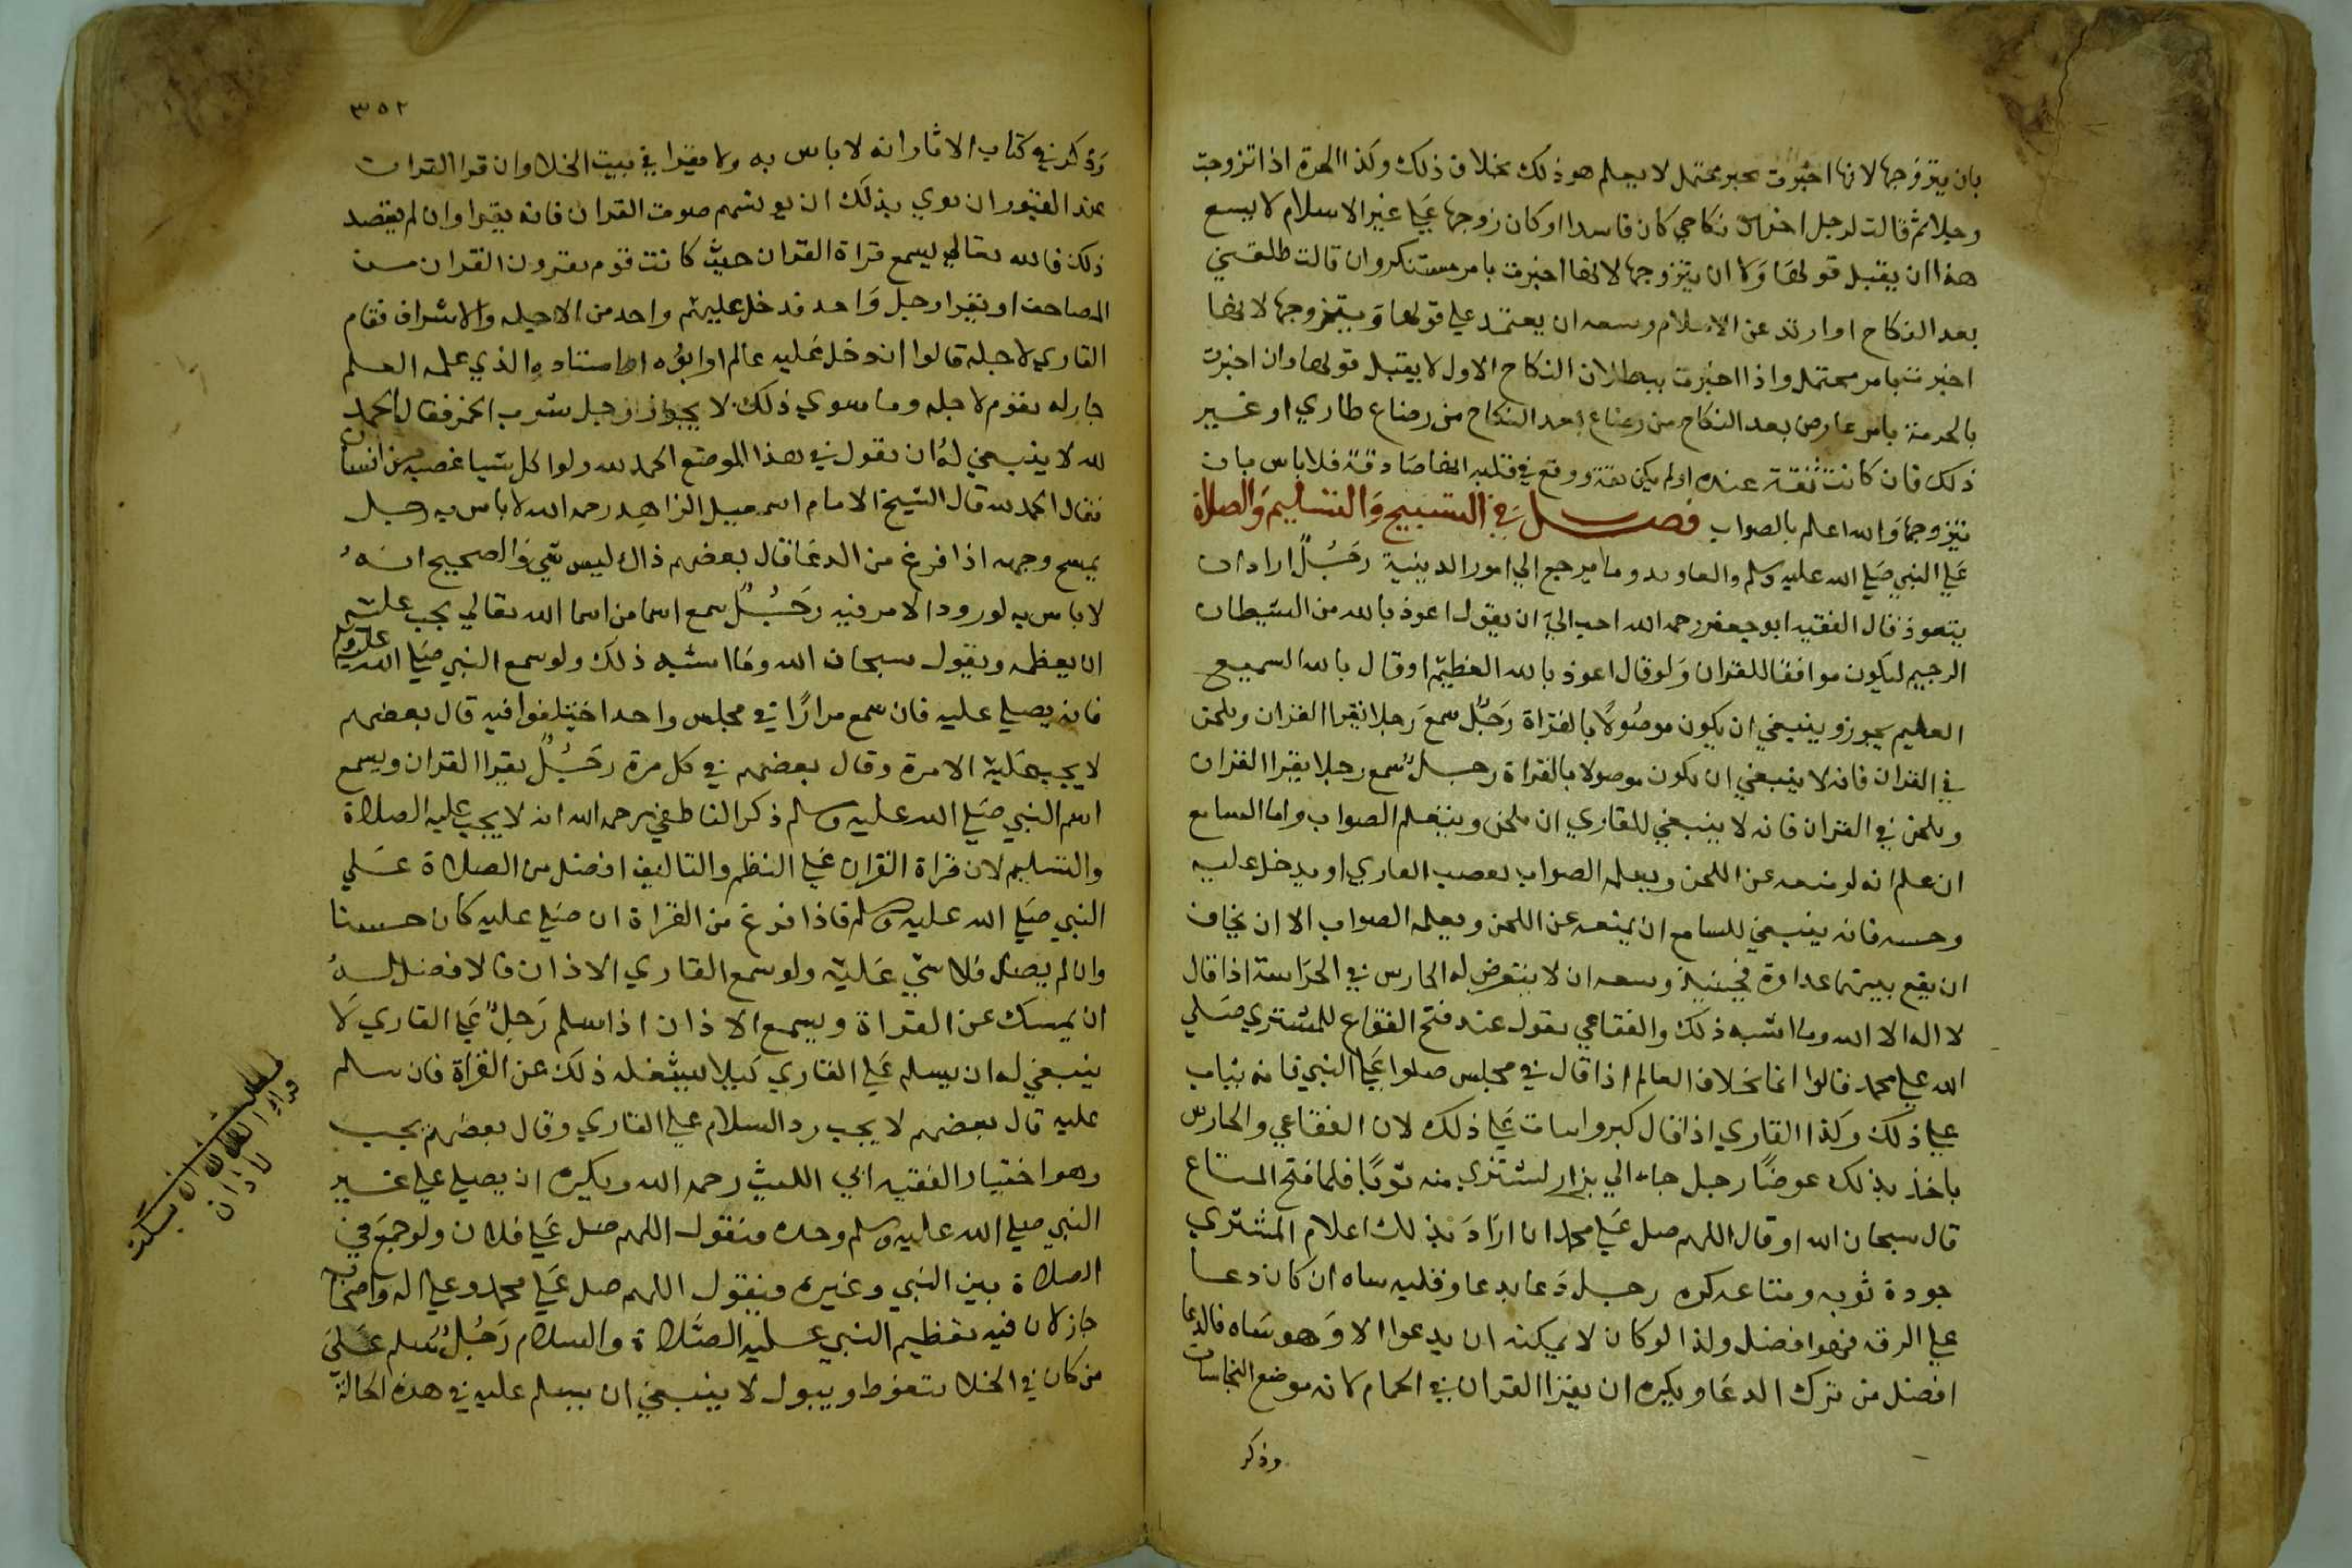 بان يتزوجها لانها اخبرت بخبر محتمل لا يعلم هو ذلك بخلاف ذلك وكذا الحرة اذا تزوجت
رجلا ثم قالت لرجل اخر ان نكاحي كان فاسدا او كان زوجها علي غير الاسلام لا يسع
هذا ان يقبل قولها ولا ان يتزوجها لانها اخبرت بامر مستنكر وان قالت طلقني
بعد النكاح او ارتد عن الاسلام وسعه ان يعتمد علي قولها ويتزوجها لانها
اخبرت بامر محتمل واذا اخبرت ببطلان النكاح الاول لا يقبل قولها وان اخبرت
بالحرمة بامر عارض بعد النكاح من رضاع بعد النكاح من رضاع طاري او غير
ذلك فان كانت ثقة عنده اولم يكن ثقة ووقع في قلبه انها صادقة فلا باس بان
يتزوجها والله اعلم بالصواب فصل في التسبيح والتسليم والصلاة
علي النبي صلي الله عليه وسلم والتعاويد وما يرجع الي امور الدينية رجل اراد ان
يتعوذ قال الفقيه ابو جعفر رحمه الله احب الي ان يقول اعوذ بالله من الشيطان
الرجيم ليكون موافقا للقران ولو قال اعوذ بالله العظيم او قال بالله السميع
العليم يجوز وينبغي ان يكون موصولا بالقراة رجل سمع رجلا يقرا القران ويلحن
في القران فانه لا ينبغي ان يكون موصولا بالقراة رجل سمع رجلا يقرا القران
ويلحن في القران فانه لا ينبغي للقاري ان يلحن ويتعلم الصواب واما السامع
ان علم انه لو منعه عن اللحن ويعلمه الصواب لغضب القاري او يدخل عليه
وحسه فانه ينبغي للسامع ان يمنعه عن اللحن ويعلمه الصواب الا ان يخاف
ان يقع بينهما عداوة فحينئذ وسعه ان لا يتعرض له الحارس في الحراسة اذا قال
لا اله الا الله وما اشبه ذلك والفقاعي يقول عند فتح الفقاع للمشتري صلي
الله علي محمد قالوا انما بخلاف العالم اذا قال في مجلس صلوا علي النبي فانه يثاب
علي ذلك وكذا القاري اذا قال كبروا يثاب علي ذلك لان الفقاعي والحارس
ياخذ بذلك عوضا رجل جاء الي بزاز ليشتري منه ثوبا فلما فتح المتاع
قال سبحان الله او قال اللهم صل علي محمد ان اراد بذلك اعلام المشتري
جودة ثوبه ومتاعه كره رجل دعا بدعا وقلبه ساه ان كان دعا
علي الرقه فهو افضل ولذا لو كان لا يمكنه ان يدعوا الا وهو ساه فالدعا
افضل من ترك الدعا ويكره ان يقرا القران في الحمام لانه موضع النجاسات
وذكر
٣٥٢
وذكر في كتاب الاثار انه لا باس به ولا يقرا في بيت الخلا وان قرا القران
عند القبور ان نوي بذلك ان يونسهم صوت القران فانه يقرا وان لم يقصد
ذلك فالله تعالي يسمع قراة القران حيث كانت قوم يقرون القران من
المصاحف او يقرا رجل واحد فدخل عليهم واحد من الاجيله والاشراف فقام
القاري لاجله قالوا ان دخل عليه عالم او ابوه او استاده الذي علمه العلم
جاز له يقوم لاجله وما سوي ذلك لا يجوز رجل شرب الخمر فقال الحمد
لله لا ينبغي له ان يقول في هذا الموضع الحمد لله ولو اكل شيا غصبه من انسان
فقال الحمد لله قال الشيخ الامام اسمعيل الزاهد رحمه الله لا باس به رجل
يمسح وجهه اذا فرغ من الدعا قال بعضهم ذاك ليس بشي والصحيح انه
لا باس به لورود الامر فيه رجل سمع اسما من اسما الله تعالي يجب عليه
ان يعظمه ويقول سبحان الله وما اشبه ذلك ولو سمع النبي صلي الله عليه وسلم
فانه يصلي عليه فان سمع مرارا في مجلس واحد اختلفوا فيه قال بعضهم
لا يجب عليه الا مرة وقال بعضهم في كل مرة رجل يقرا القران ويسمع
اسم النبي صلي الله عليه وسلم ذكر الناطفي رحمه الله انه لا يجب عليه الصلاة
والتسليم لان قراة القران علي النظم والتاليف افضل من الصلاة علي
النبي صلي الله عليه وسلم فاذا فرغ من القراة ان صلي عليه كان حسنا
وان لم يصل فلا شي عليه ولو سمع القاري الاذان فالافضل له
ان يمسك عن القراة ويسمع الاذان اذا سلم رجل علي القاري لا
ينبغي له ان يسلم علي القاري كيلا يشغله ذلك عن القراة فان سلم
عليه قال بعضهم لا يجب رد السلام علي القاري وقال بعضهم يجب
وهو اختيار الفقيه ابي الليث رحمه الله ويكره ان يصلي علي غير
النبي صلي الله عليه وسلم وحده فيقول اللهم صل علي فلان ولو جمع في
الصلاة بين النبي وغيره فيقول اللهم صل علي محمد وعلي اله واصحابه
جاز لان فيه تعظيم النبي عليه الصلاة والسلام رجل سلم علي
من كان في الخلا يتغوط ويبول لا ينبغي ان يسلم عليه في هذه الحالة